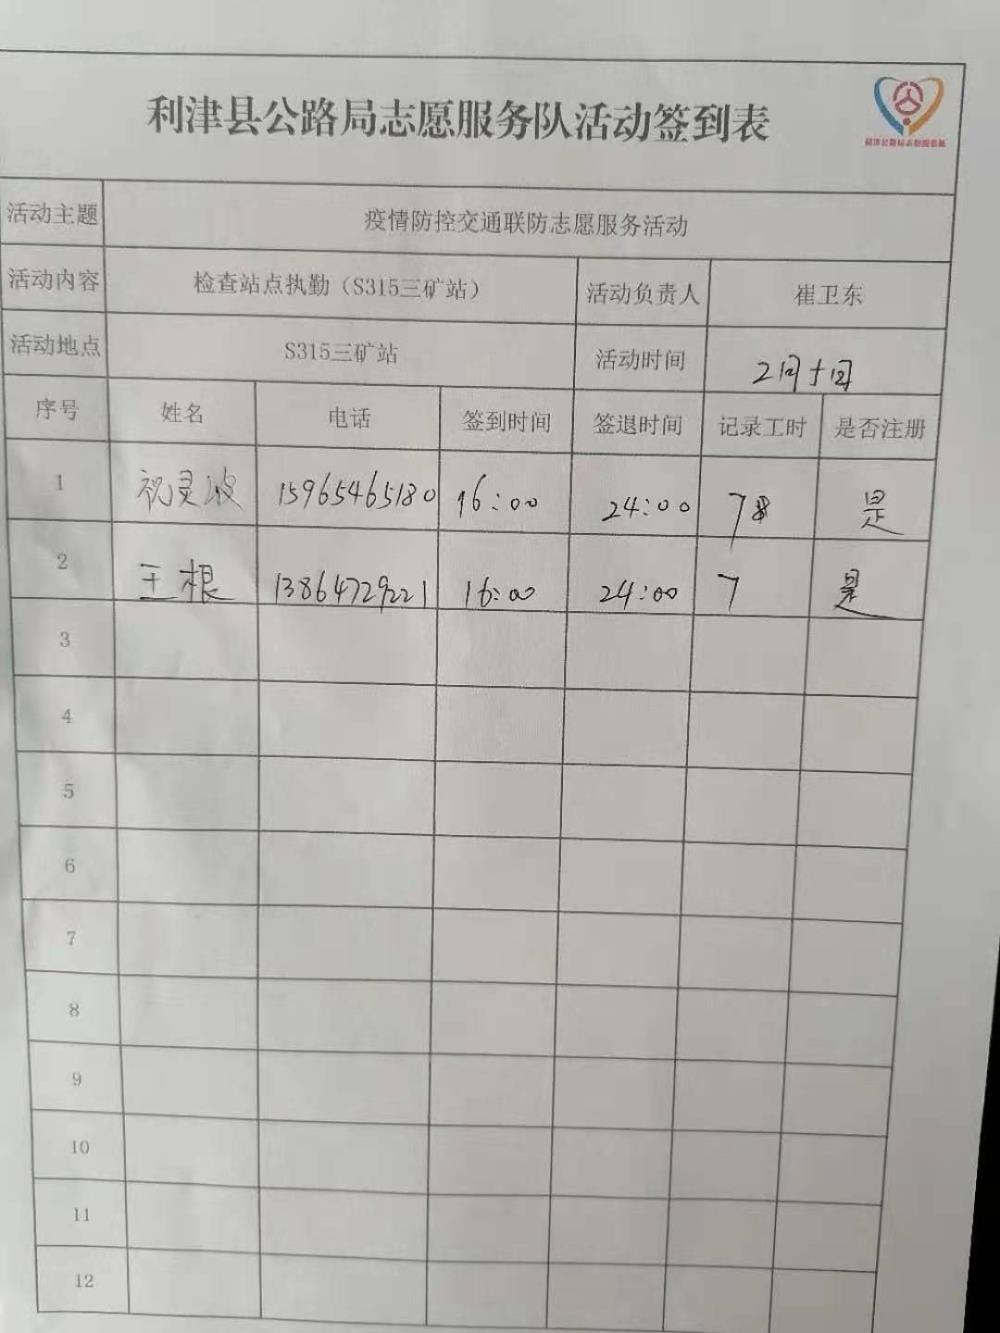 利津县公路局志愿服务队活动签到表
利津公路局志愿服务队
活动主题 疫情防控交通联防志愿服务活动
活动内容 检查站点执勤（S315三矿站） 活动负责人 崔卫东
活动地点 S315三矿站 活动时间 2月十日
序号 姓名 电话 签到时间 签退时间 记录工时 是否注册
1 祝灵波 15965465180 16:00 24:00 7 是
2 王根 13864729221 16:00 24:00 7 是
3
4
5
6
7
8
9
10
11
12